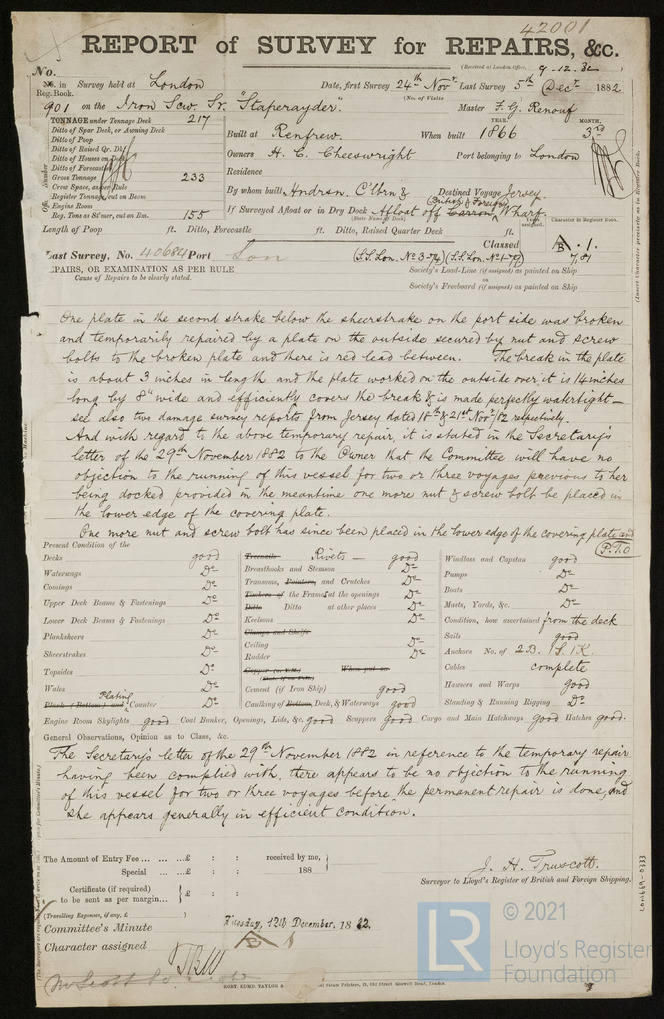 42001
REPORT of SURVEY for REPAIRS, &c.
(Received at London Office, 9-12-82
No.
No. in Survey held at London Date, first Survey 24th Novr. Last Survey 5th Decr 1882
Reg. Book. (No. of Visits
901 on the Iron Scw. Sr. "Staperayder." Master F. G. Renouf
TONNAGE under Tonnage Deck 217
Ditto of Spar Deck, or Awning Deck
Ditto of Poop
Ditto of Raised Qr. Dk
Ditto of Houses on Deck
Ditto of Forecastle
Gross Tonnage 233
Crew Space, as per Rule
Register Tonnage cut on Beam
Engine Room
Reg. Tons as St'mer, cut on Bm. 155
YEAR. MONTH.
Built at Renfrew. When built 1866 3rd
Owners H. C. Cheeswright Port belonging to London
Residence
By whom built Hndrsn. C'lbrn & Destined Voyage Jersey.
(British & Foreign)
If Surveyed Afloat or in Dry Dock Afloat off Carron Wharf.
(State Name of Dock)
Length of Poop ft. Ditto, Forecastle ft. Ditto, Raised Quarter Deck ft.
Years assigned. Character in Register Book.
Last Survey, No. 40684 Port Lon (S.S. Lon. No 3-74) (S.S. Lon. No 1-79) Classed A.1.
B 7,81
PAIRS, OR EXAMINATION AS PER RULE
Cause of Repairs to be clearly stated.
Society's Load-Line (if assigned) as painted on Ship
or
Society's Freeboard (if assigned) as painted on Ship
One plate in the second strake below the sheerstrake on the port side was broken
and temporarily repaired by a plate on the outside secured by nut and screw
bolts to the broken plate and there is red lead between. The break in the plate
is about 3 inches in length and the plate worked on the outside over it is 14 inches
long by 8" wide and efficiently covers the break & is made perfectly watertight—
see also two damage survey reports from Jersey dated 18th & 21st Novr/82 respectively.
And with regard to the above temporary repair, it is stated in the Secretary's
letter of the 29th November 1882 to the Owner that the Committee will have no
objection to the running of this vessel for two or three voyages previous to her
being docked provided in the meantime one more nut & screw bolt be placed in
the lower edge of the covering plate.
One more nut and screw bolt has since been placed in the lower edge of the covering plate and
(P.T.O
Present Condition of the
Decks good
Waterways Do
Comings Do
Upper Deck Beams & Fastenings Do
Lower Deck Beams & Fastenings Do
Planksheers Do
Sheerstrakes Do
Topsides Do
Wales Do
Plating
Plank (Bottom) and Counter Do
Treenails Rivets — good
Breasthooks and Stemson Do
Transoms, Pointers, and Crutches Do
Timbers of the Frames at the openings Do
Ditto Ditto at other places Do
Keelsons Do
Clamps and Shelfs
Ceiling Do
Rudder Do
Copper (or Y.M.) When put on.
(State if on Felt)
Cement (if Iron Ship) good
Caulking of Bottom, Deck, & Waterways good
Windlass and Capstan good
Pumps Do
Boats Do
Masts, Yards, &c. Do
Condition, how ascertained from the deck
Sails good
Anchors No. of 2 B. 1 S. 1 K.
Cables complete
Hawsers and Warps good
Standing & Running Rigging Do
Engine Room Skylights good Coal Bunker, Openings, Lids, &c. good Scuppers good Cargo and Main Hatchways good Hatches good.
General Observations, Opinion as to Class, &c.
The Secretary's letter of the 29th November 1882 in reference to the temporary repair
having been complied with, there appears to be no objection to the running
of this vessel for two or three voyages before the permanent repair is done, and
she appears generally in efficient condition.
The Amount of Entry Fee ... £ : : received by me,
Special ... £ : : 188
Certificate (if required) £ : :
to be sent as per margin...
(Travelling Expenses, if any, £ )
J. H. Truscott.
Surveyor to Lloyd's Register of British and Foreign Shipping.
Committee's Minute Tuesday, 12th December, 1882.
Character assigned A 1
B
LON669-0333
© 2021
LR Lloyd's Register
Foundation